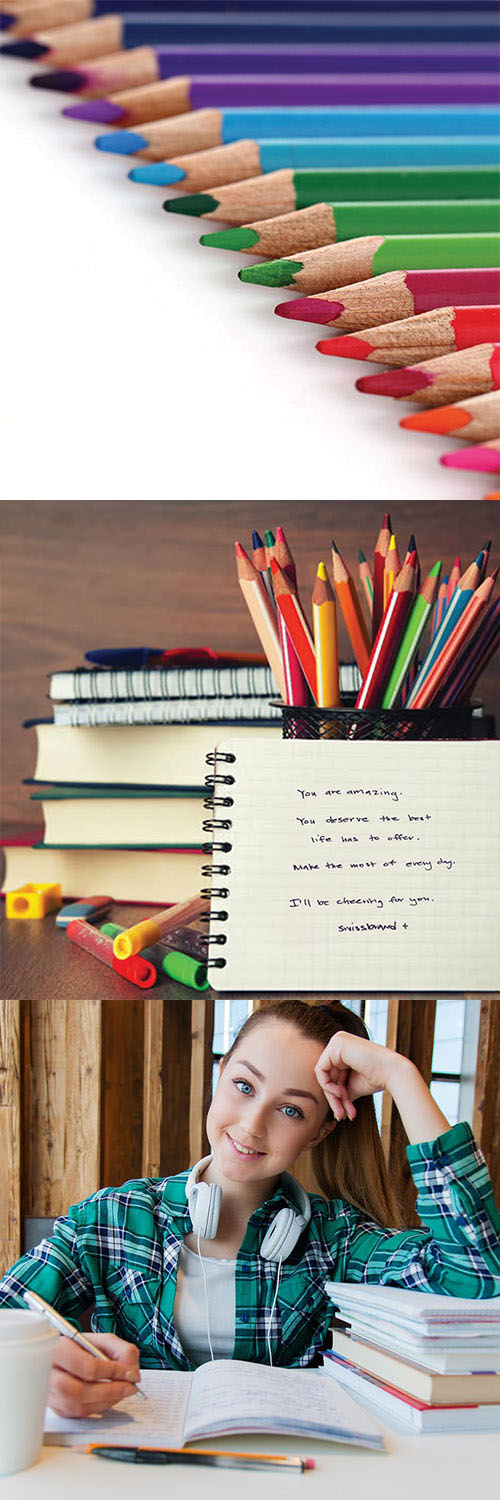 You are amazing.
You deserve the best
life has to offer.
Make the most of every day.
I'll be cheering for you.
swissbrand +